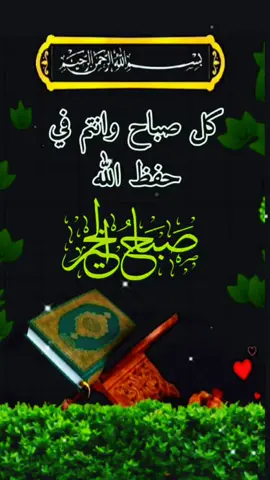 بسم الله الرحمن الرحيم
كل صباح وانتم في
حفظ الله
صباح الخير